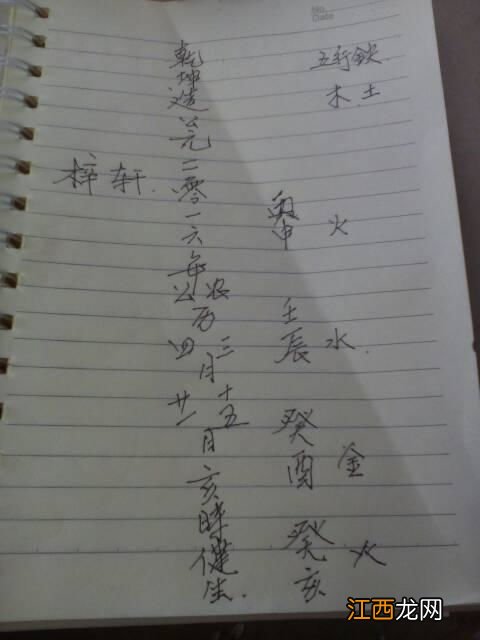 No.
Date
五行缺
木.土
丙申 火
壬辰 水.
癸酉 金
癸亥 火
乾坤造公元二零一六年公农历四三月廿一十五日亥時健生.
梓轩.
江西龙网